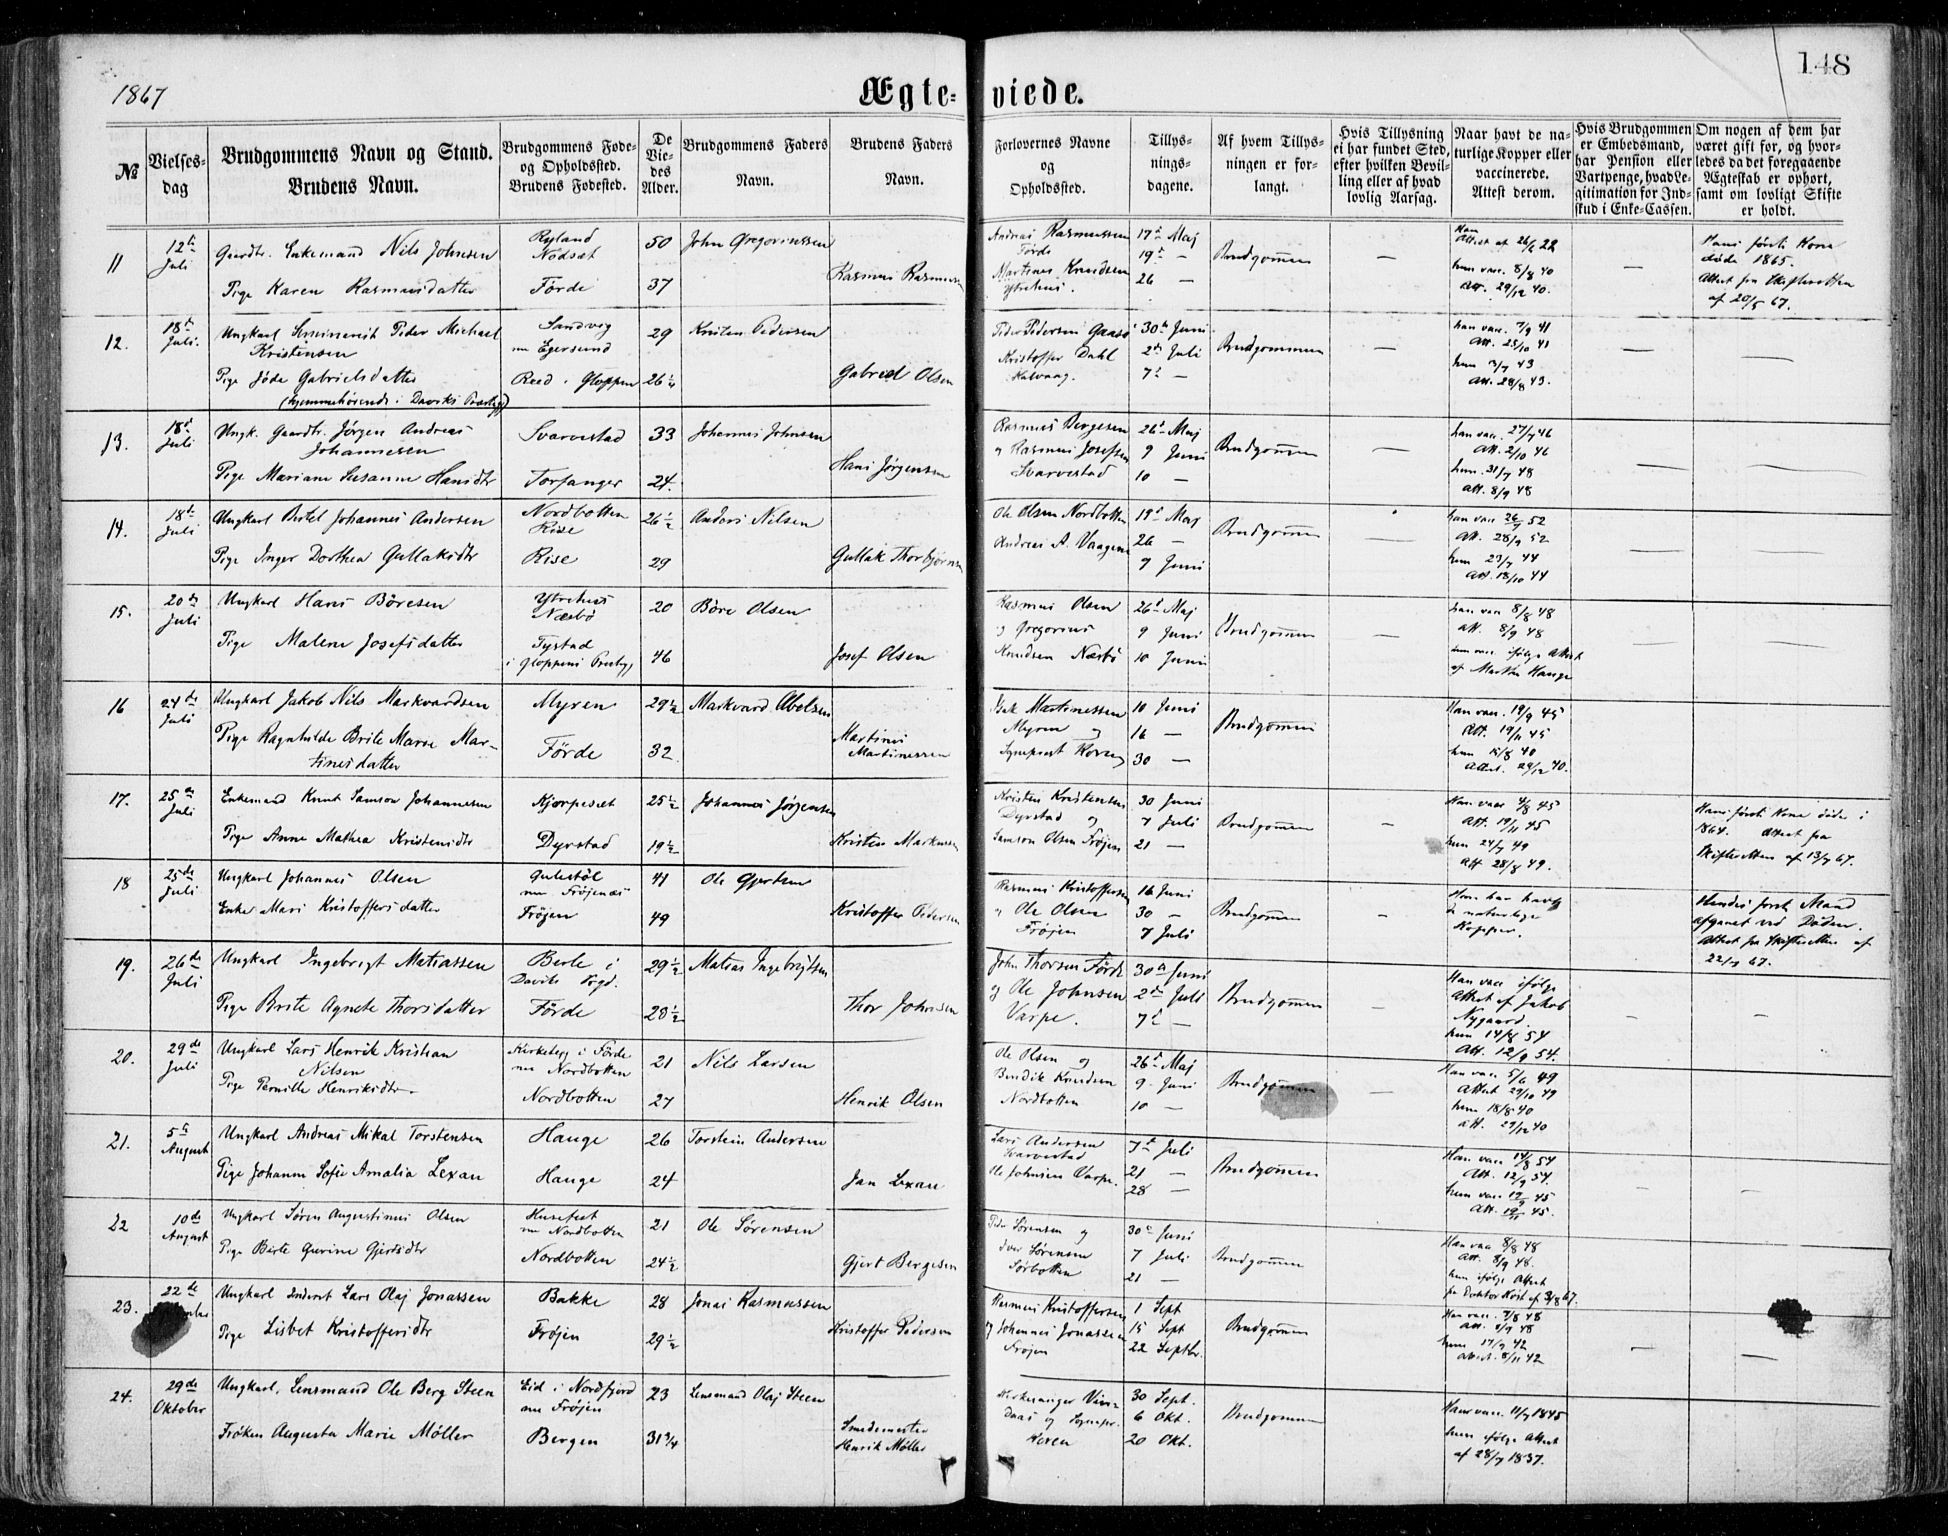 1867
Ægteviede.
148
№
Vielsesdag
Brudgommens Navn og Stand.
Brudens Navn.
Brudgommens Føde-
og Opholdssted.
Brudens Fødested.
De
Vie-
des
Alder.
Brudgommens Faders
Navn.
Brudens Faders
Navn.
Forlovernes Navne
og
Opholdssted.
Tillys-
nings-
dagene.
Af hvem Tillys-
ningen er for-
langt.
Hvis Tillysning
ei har fundet Sted,
efter hvilken Bevil-
ling eller af hvad
lovlig Aarsag.
Naar havt de na-
turlige Kopper eller
vaccinerede.
Attest derom.
Hvis Brudgommen
er Embedsmand,
har Pension eller
Vartpenge, hvad Le-
gitimation for Ind-
skud i Enke-Cassen.
Om nogen af dem har
været gift før, og hvor-
ledes da det foregaaende
Ægteskab er ophørt,
samt om lovligt Skifte
er holdt.
11 12te Juli Gaardbr. Enkemand Nils Johnsen Ryland Nødsæt 50 John Gregoriussen
Pige Karen Rasmusdatter Förde 37 Rasmus Rasmussen
Andreas Rasmussen Förde Martinus Knudsen Ytrehus. 17de Maj 19de — 26 — Brudgommen —
Han Attest af 26/6 22 hun vacc. 8/8 40 Att. 29/12 40. —
Hans første Kone døde 1865. Attest fra Skifteretten af 20/5 67.
12. 18de Juli. Ungkarl Seminarist Peder Michael Kristensen Sandvig nu Egersund 29 Kristen Pedersen
Pige Jøda Gabrielsdatter Reed i Gloppen 26 1/4 Gabriel Olsen
(hjemmehørende i Daviks Præstegj)
Peder Pedersen Gaasø Kristoffer Dahl Kalvaag. 30te Juni 2den Juli 7de — Brudgommen —
han vacc. 7/9 41 Att. 25/10 41 hun 3/7 43 Att. 28/8 43. — —
13. 18de Juli Ungk. Gaardbr. Jørgen Andreas Johannesen Svarvestad 33 Johannes Johnsen
Pige Mariane Susanne Hansdtr Torfanger 24. Hans Jørgensen
Rasmus Børgesen og Rasmus Josefsen Svarvestad 26de Maj 9 Juni 10 — Brudgommen —
han vacc. 27/7 46 Att. 2/10 46 hun. 31/7 48 Att. 8/9 48 — —
14. 18de Juli Ungkarl Bertel Johannes Andersen Nordbotten Rise 26 1/2 Anders Nilsen
Pige Inger Dorthea Gullaksdtr Rise 29 Gullak Thorbjørnsen
Ole Olsen Nordbotten Andreas A. Vaagene 19de Maj 26 — 9 Juni Brudgommen —
han vacc 26/7 52 Att. 28/9 52 hun 23/7 44 Att. 18/10 44 — —
15. 20de Juli Ungkarl Hans Böresen Ytrehus Næsbø 20 Böre Olsen
Pige Malene Josefsdatter Tystad i Gloppens Præstegj 46 Josef Olsen
Rasmus Olsen og Gregorius Knudsen Næsbø 26de Maj 9 Juni 10 Juni Brudgommen —
han vacc 8/8 48 att. 8/9 48 hun vacc. ifølge Attest af Martin Hauge
16 24de Juli Ungkarl Jakob Nils Markvardsen Myren 29 1/2 Markvard Abelsen
Pige Ragnhilde Brite Marie Mar-
tinesdatter Förde 32 Martines Martinessen
Isak Martinessen Myren og 10 Juni 16 — 30 — Brudgommen
Han vacc. 19/9 45 Att. 19/11 45 hun 15/8 40 Attest. 29/12 40.
17. 25de Juli Enkemand Knut Samson Johannesen Kjørpesæt 25 1/2 Johannes Jørgensen
Pige Anne Mathea Kristensdtr Dyrstad 19 1/2 Kristen Markussen
Kristen Kristensen Dyrstad og Samson Olsen Frøjen 30 Juni 7 Juli 21 — Brudgommen —
Han vacc 4/8 45 Att. 19/11 45 hun 24/7 49 Att 28/8 49.
Hans første Kone døde i 1864. Attest fra Skifteretten af 13/7 67.
18 25de Juli Ungkarl Johannes Olsen Gulestöl nu Frøjenæs 41 Ole Gjertsen
Enke Mari Kristoffersdatter Frøjen 49 Kristoffer Pedersen
Rasmus Kristoffersen og Ole Olsen Frøjen 16 Juni 30 — 7 Juli Brudgommen —
Hun har havt de naturlige Kopper.
Hendes første Mand afganet ved Døden. Attest fra Skifteretten af 22/7 67.
19. 26de Juli Ungkarl Ingebrigt Matiassen Berle i Daviks Prgd. 29 1/2 Matias Ingebrigtsen
Pige Brite Agnete Thorsdatter Förde 28 1/2 Thor Johnsen
John Thorsen Förde og Ole Johnsen Varpe. 30te Juni 2den Juli 7de — Brudgommen —
Han vacc ifølge Attest af Jakob Nygaard. hun 14/8 54 Att. 12/9 54. — —
20. 29de Juli Ungkarl Lars Henrik Kristian Nilsen Kirkebygd i Förde nu Nordbotten 21 Nils Larsen
Pige Pernille Henriksdtr Nordbotten 27 Henrik Olsen
Ole Olsen og Bendik Knudsen Nordbotten 26de Maj 9 Juni 10 — Brudgommen —
Han vacc 5/6 49 Attest 29/10 49 hun 18/8 40 att. 29/12 40
21. 5te August Ungkarl Andreas Mikal Torstensen Hauge 26 Torstein Andersen
Pige Johanne Sofie Amalia Lexau Hauge 24 Jan Lexau
Lars Andersen Svarvestad Ole Johnsen Varpe. 7de Juli 21 — 28 — Brudgommen
Han vacc 14/8 54 Att. 12/9 54. hun vacc 19/9 45 Att. 19/11 45. — —
22 10de August Ungkarl Søren Augustinus Olsen Husefest nu Nordbotten 21 Ole Sørensen
Pige Birte Gurine Gjertsdtr Nordbotten 24 1/2 Gjert Bergesen
Peder Sørensen og Iver Sørensen Sørbotten 30te Juni 7 Juli 21 — Brudgommen
Han vacc 8/8 48 Att. 8/9 48. hun ifølge Attest fra Doktor Kost af 3/8 67.
23. 22de Ungkarl Inderst Lars Olaj Jonassen Bakke 28 Jonas Rasmussen
Pige Lisbet Kristoffersdtr Frøjen 29 1/2 Kristoffer Pedersen
Rasmus Kristoffersen og Johannes Jonassen Frøjen 1 Sept 15 Sept 22 Septbr. Brudgommen
Han vacc. 7/8 48 att. 8/9 48 hun 17/9 42 Attest. 8/11 42 — —
24. 29de Oktober Ungkarl, Lensmand Ole Berg Steen Eid i Nordfjord nu Frøjen 23 Lensmand Olaj Steen
Frøken Augusta Marie Møller Bergen 31 3/4 Smedemester Henrik Møller
Kirkesanger Vin-
daas og 30 Sept. 6 Okt. 20 Okt. Brudgommen
Han vacc. 11/7 1845 hun ifølge Attest af 28/7 1837.